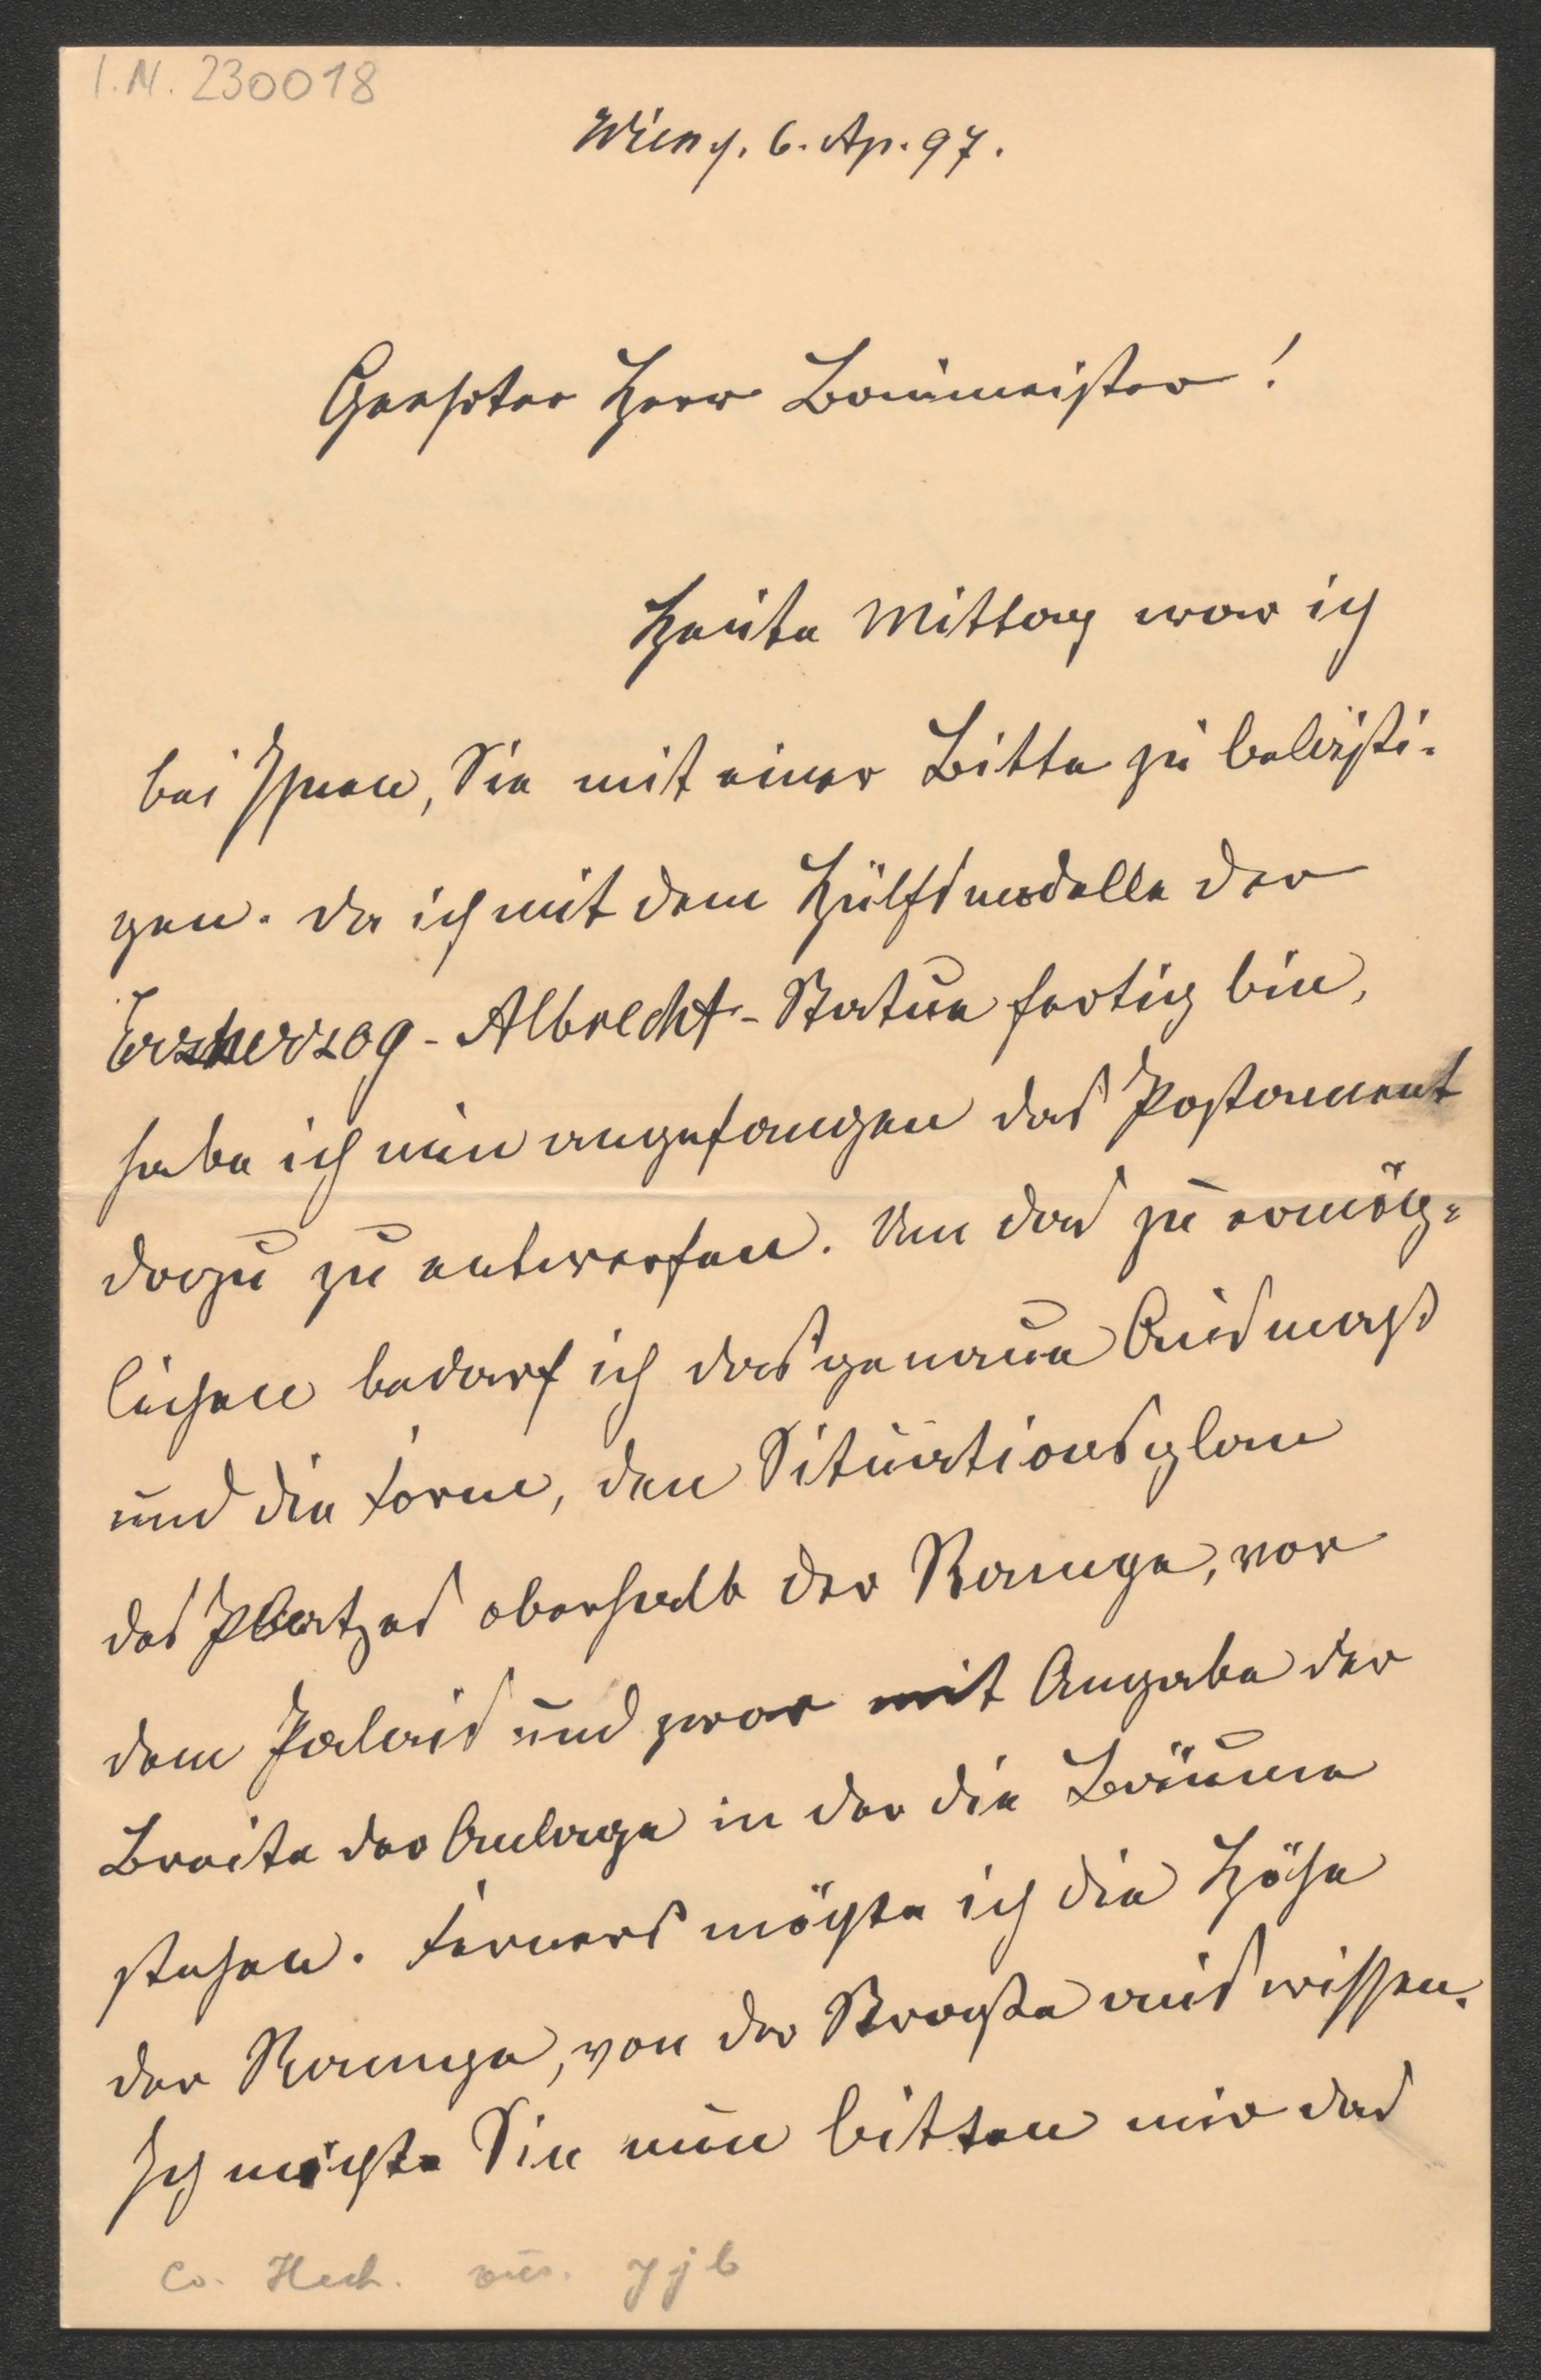 I.N. 230018
Wien, d. 6. Ap. 97.
Geehrter Herr Baumeister!
Heute Mittag war ich
bei Ihnen, Sie mit einer Bitte zu belästi-
gen. Da ich mit dem Hülfsmodelle der
Erzherzog-Albrecht-Statue fertig bin,
habe ich nun angefangen das Postament
dazu zu entwerfen. Um das zu ermög-
lichen bedarf ich das genaue Ausmaß
und die Form, den Situationsplan
des Platzes oberhalb der Rampe, vor
dem Palais und zwar mit Angabe der
Breite der Anlage in der die Bäume
stehen. Ferners möchte ich die Höhe
der Rampe, von der Straße aus wissen.
Ich möchte Sie nun bitten mir das